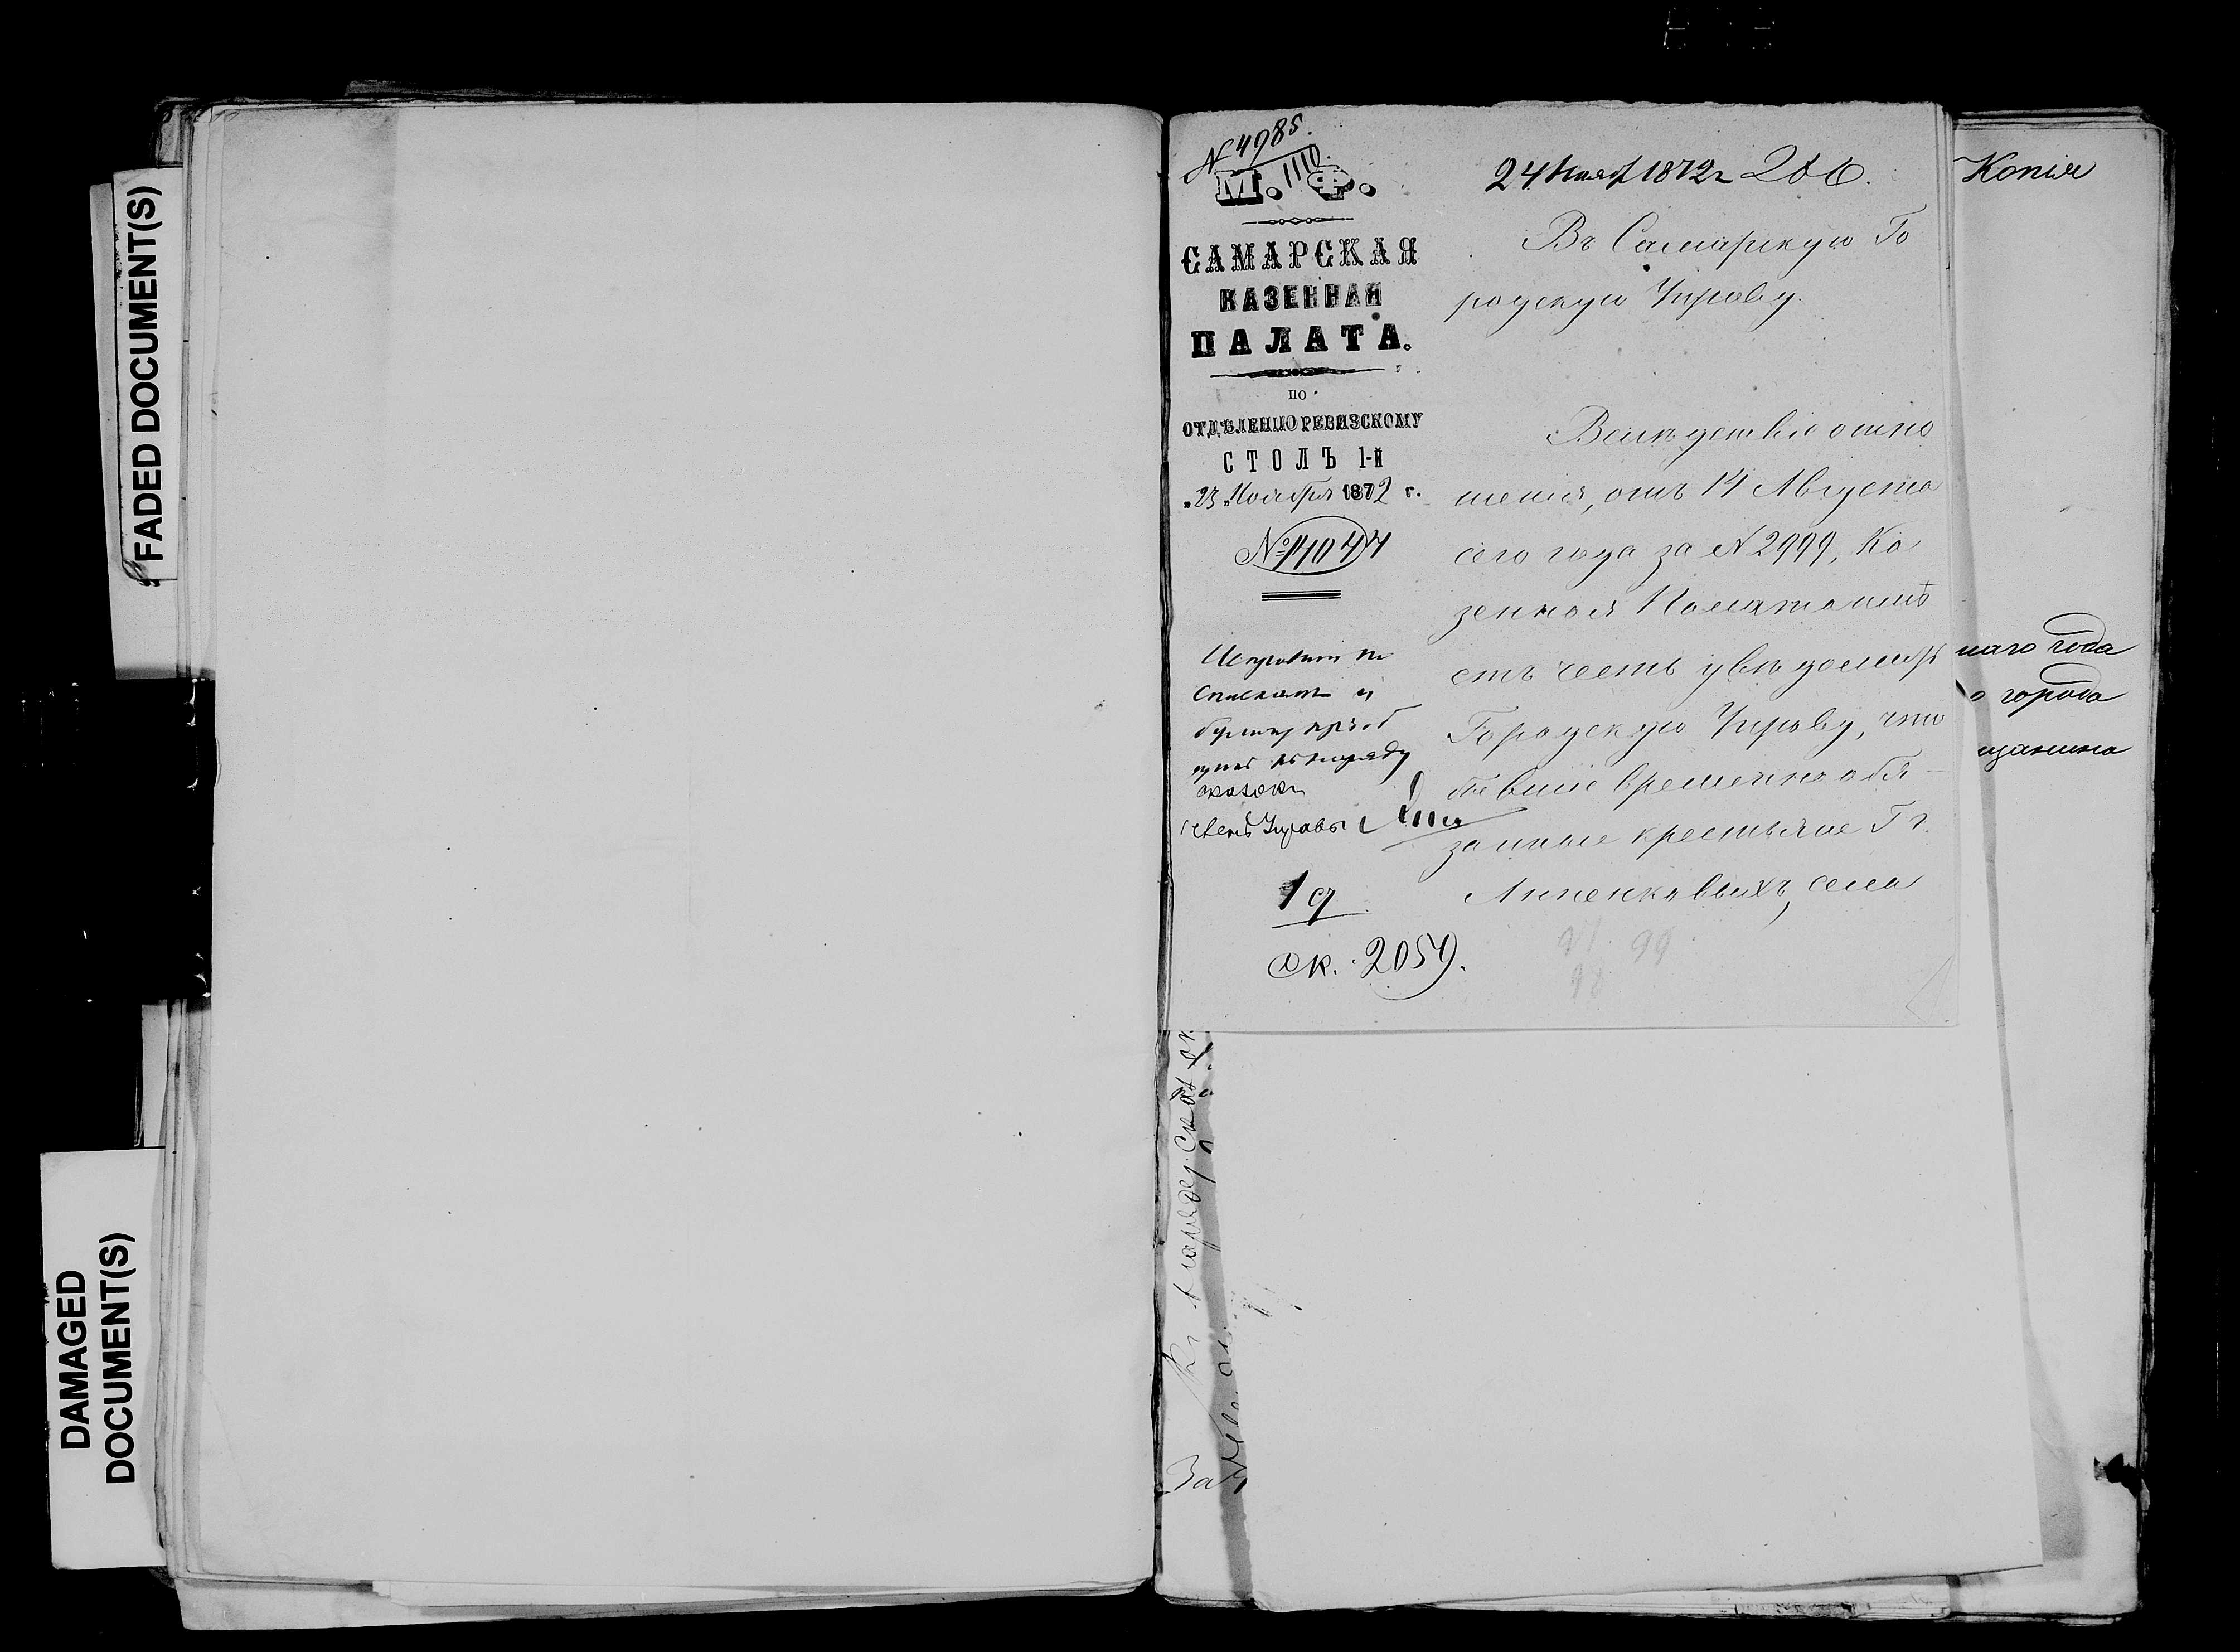 FADED DOCUMENT(S)
DAMAGED
DOCUMENT(S)
№ 4985.
М. Ф.
САМАРСКАЯ
КАЗЕННАЯ
ПАЛАТА.
ПО
ОТДѢЛЕНІЮ РЕВИЗСКОМУ
СТОЛЪ 1-й
„23„ Ноября 1872 г.
№ 14044
Исправить по
спискамъ и
бумагу
сказокъ
Членъ Управы
19
ск. 2059.
24 Нояб 1872 г 286.
Въ Самарскую Го
родскую Управу.
Вслѣдствіе отно
шенія, отъ 14 Августа
сего года за № 2999, Ка
зенная Палата имѣ
етъ честь увѣдомить
Городскую Управу, что
бывшіе временно обя-
занные крестьяне Гг.
Анненковыхъ, села
91. 99
98
Копія
наго года
о города
щанина
За